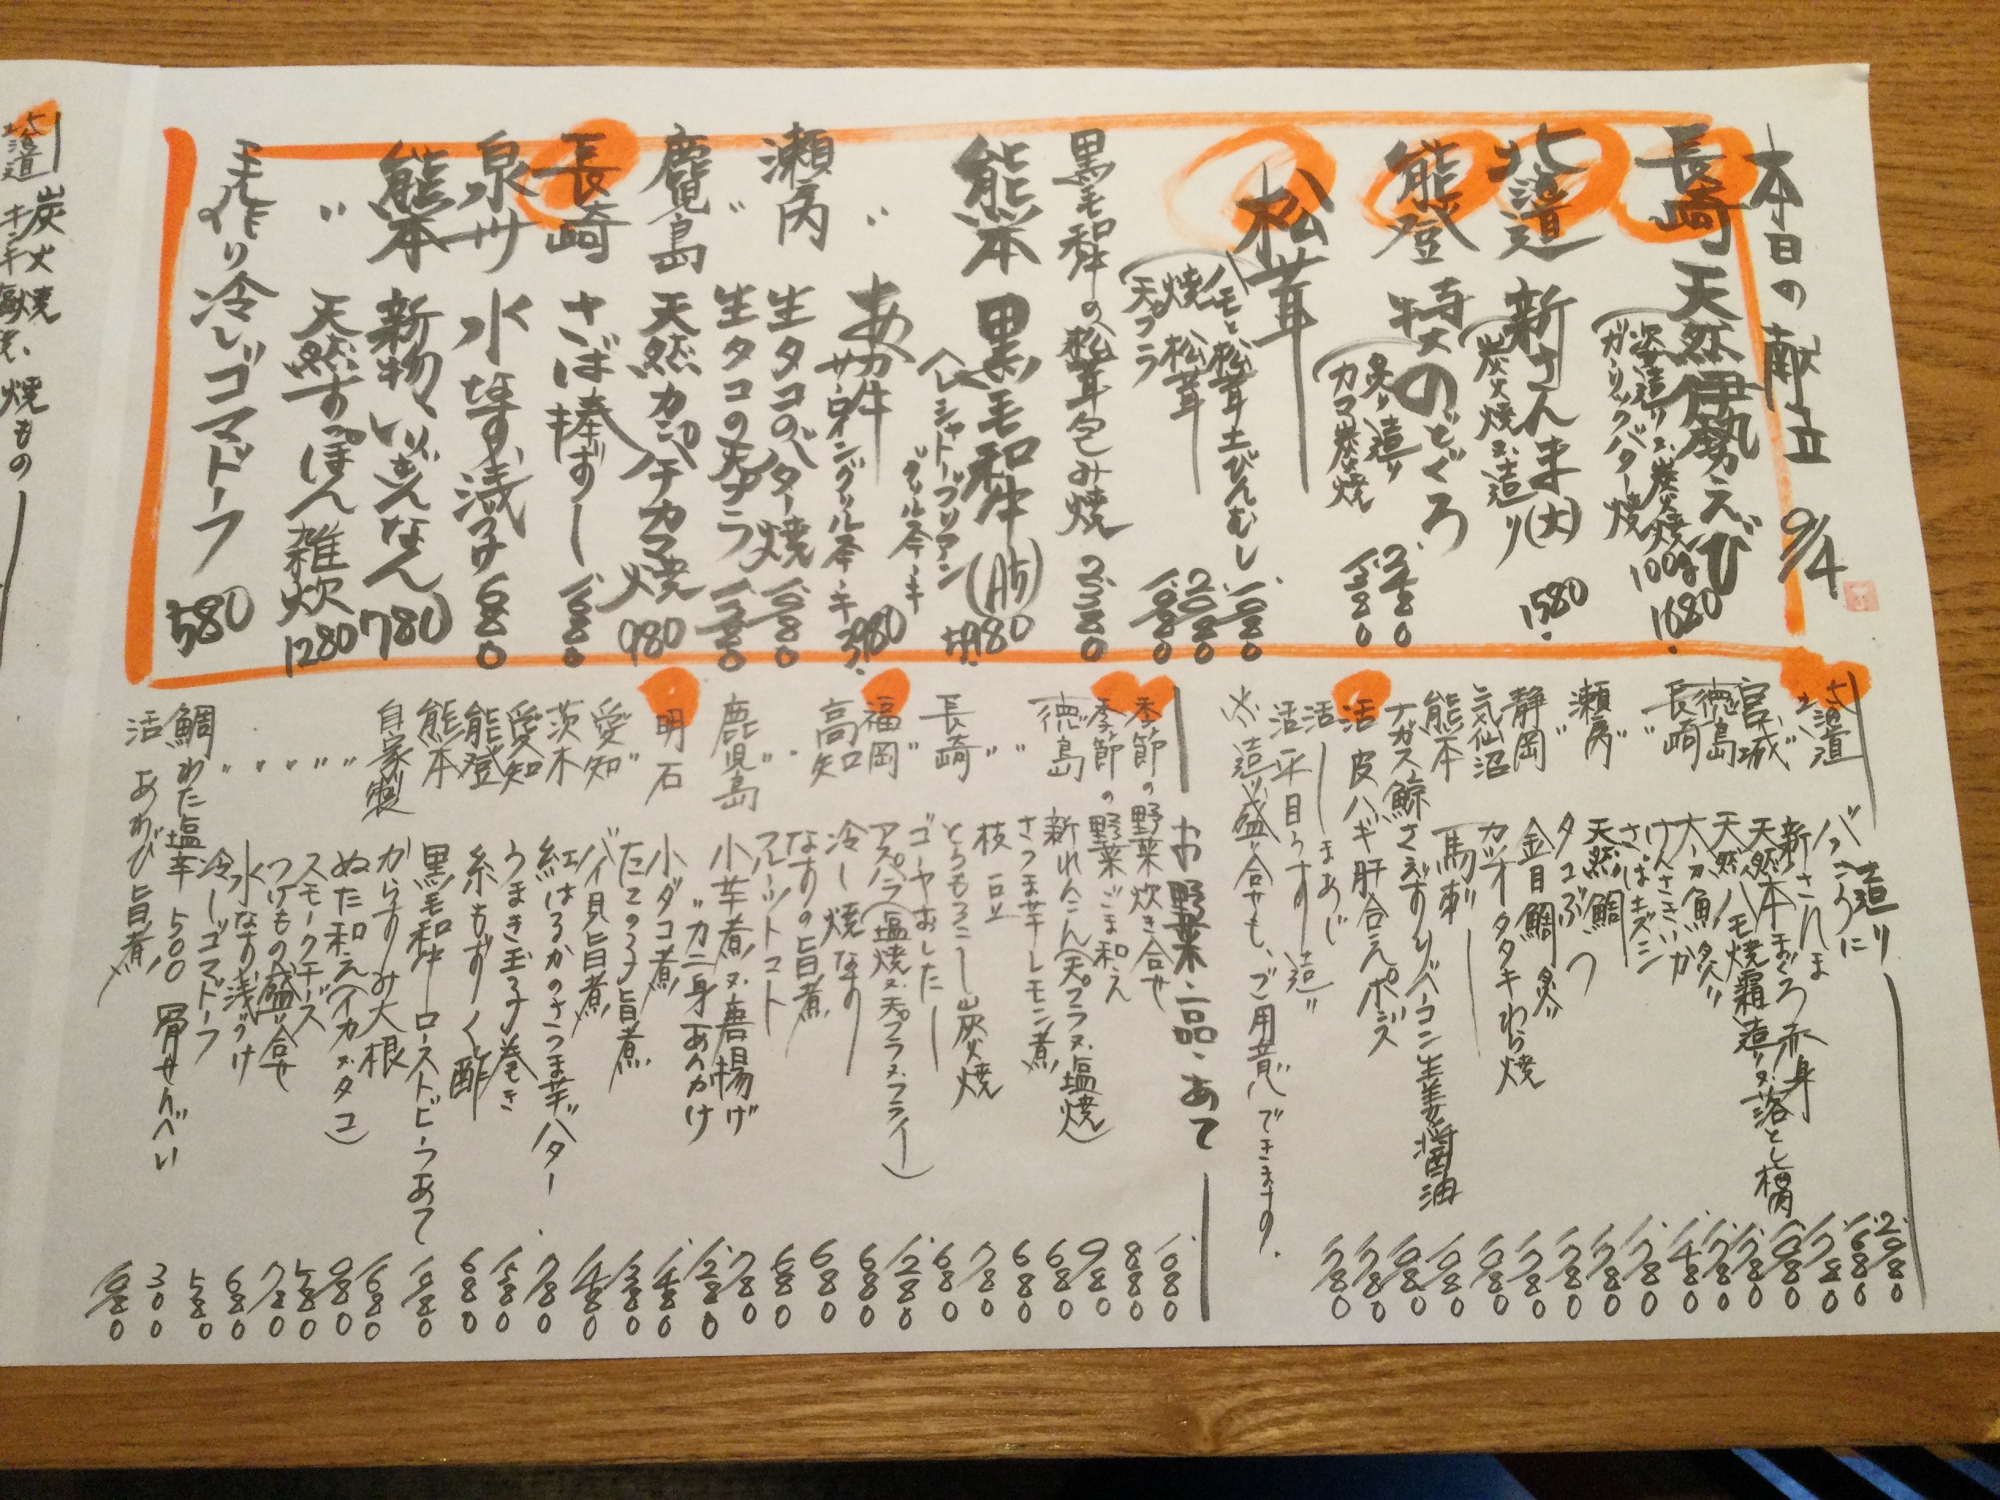 本日の献立 9/4
長崎 天然伊勢えび
姿造り又炭火焼 100g 1680
ガーリックバター焼
北海道 新さんま(大)
炭火焼又造り 1580
能登 特大のどぐろ
炙り造り 2480
カマ炭焼 1380
松茸
ハモと松茸土びんむし 1080
焼松茸 2080
天プラ 1080
黒毛和牛の松茸包み焼 2380
熊本 黒毛和牛(A5)
ヘレシャトーブリアン
グリルステーキ
〃 あか牛
サーロイングリルステーキ 3980
瀬戸内 生タコのバター焼 1080
〃 生タコの天プラ
鹿児島 天然カンパチカマ焼 980
長崎 さば棒ずし
泉州 水なす浅づけ 680
熊本 新物いきなんなん 780
〃 天然すっぽん雑炊 1280
手作り冷しゴマドーフ 580
造り
北海道 バフンうに 2980
新さんま 1680
宮城 天然本まぐろ赤身
徳島 天然ハモ焼霜造り又落とし梅肉
長崎
けんさきいか
さばキズシ
瀬戸内 天然鯛
〃 タコぶつ
静岡 金目鯛炙り
気仙沼 カツオタタキわら焼
熊本 馬刺し
ナガス鯨さえずりベーコン生姜醤油
活 皮ハギ肝合えポン酢
活 しまあじ
活 平目うす造り
※造り盛合せも、ご用意できます。
お野菜・一品・あて
季節の野菜炊き合せ 1080
季節の野菜ごま和え 880
徳島 新れんこん(天プラ又塩焼) 980
〃 さつま芋レモン煮 680
〃 枝豆 680
長崎 とうもろこし炭火焼 780
〃 ゴーヤおひたし 680
福岡 アスパラ(塩焼又天プラ又フライ) 1280
高知 冷し焼なす 680
〃 なすの旨煮 680
〃 フルーツトマト 680
鹿児島 小芋煮又唐揚げ 780
〃 カニ身あんかけ 1280
明石 小ダコ煮 1480
〃 たこの子旨煮
愛知 バイ貝旨煮 1480
茨木 紅はるかのさつま芋バター 780
愛知 うまき玉子巻き 1580
能登 糸もずく酢 680
熊本 黒毛和牛ローストビーフあて 1980
自家製 からすみ大根 1680
〃 ぬた和え(イカ又タコ) 980
〃 スモークチーズ 580
〃 つけもの盛り合せ 780
〃 水なす浅づけ 680
〃 冷しゴマドーフ 580
鯛わた塩辛 500 骨せんべい 300
活 あわび旨煮 1980
北海道
炭火焼、焼もの
キンキ塩焼